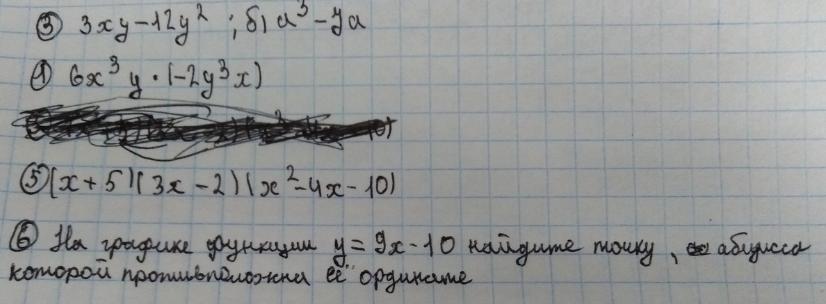 ③ 3xy-12y² ; б) a³-7a
① 6x³y·(-2y³x)
⑤ (x+5)(3x-2)(x²-4x-10)
⑥ На графике функции y=9x-10 найдите точку, абцисса
которой противположна её ординате